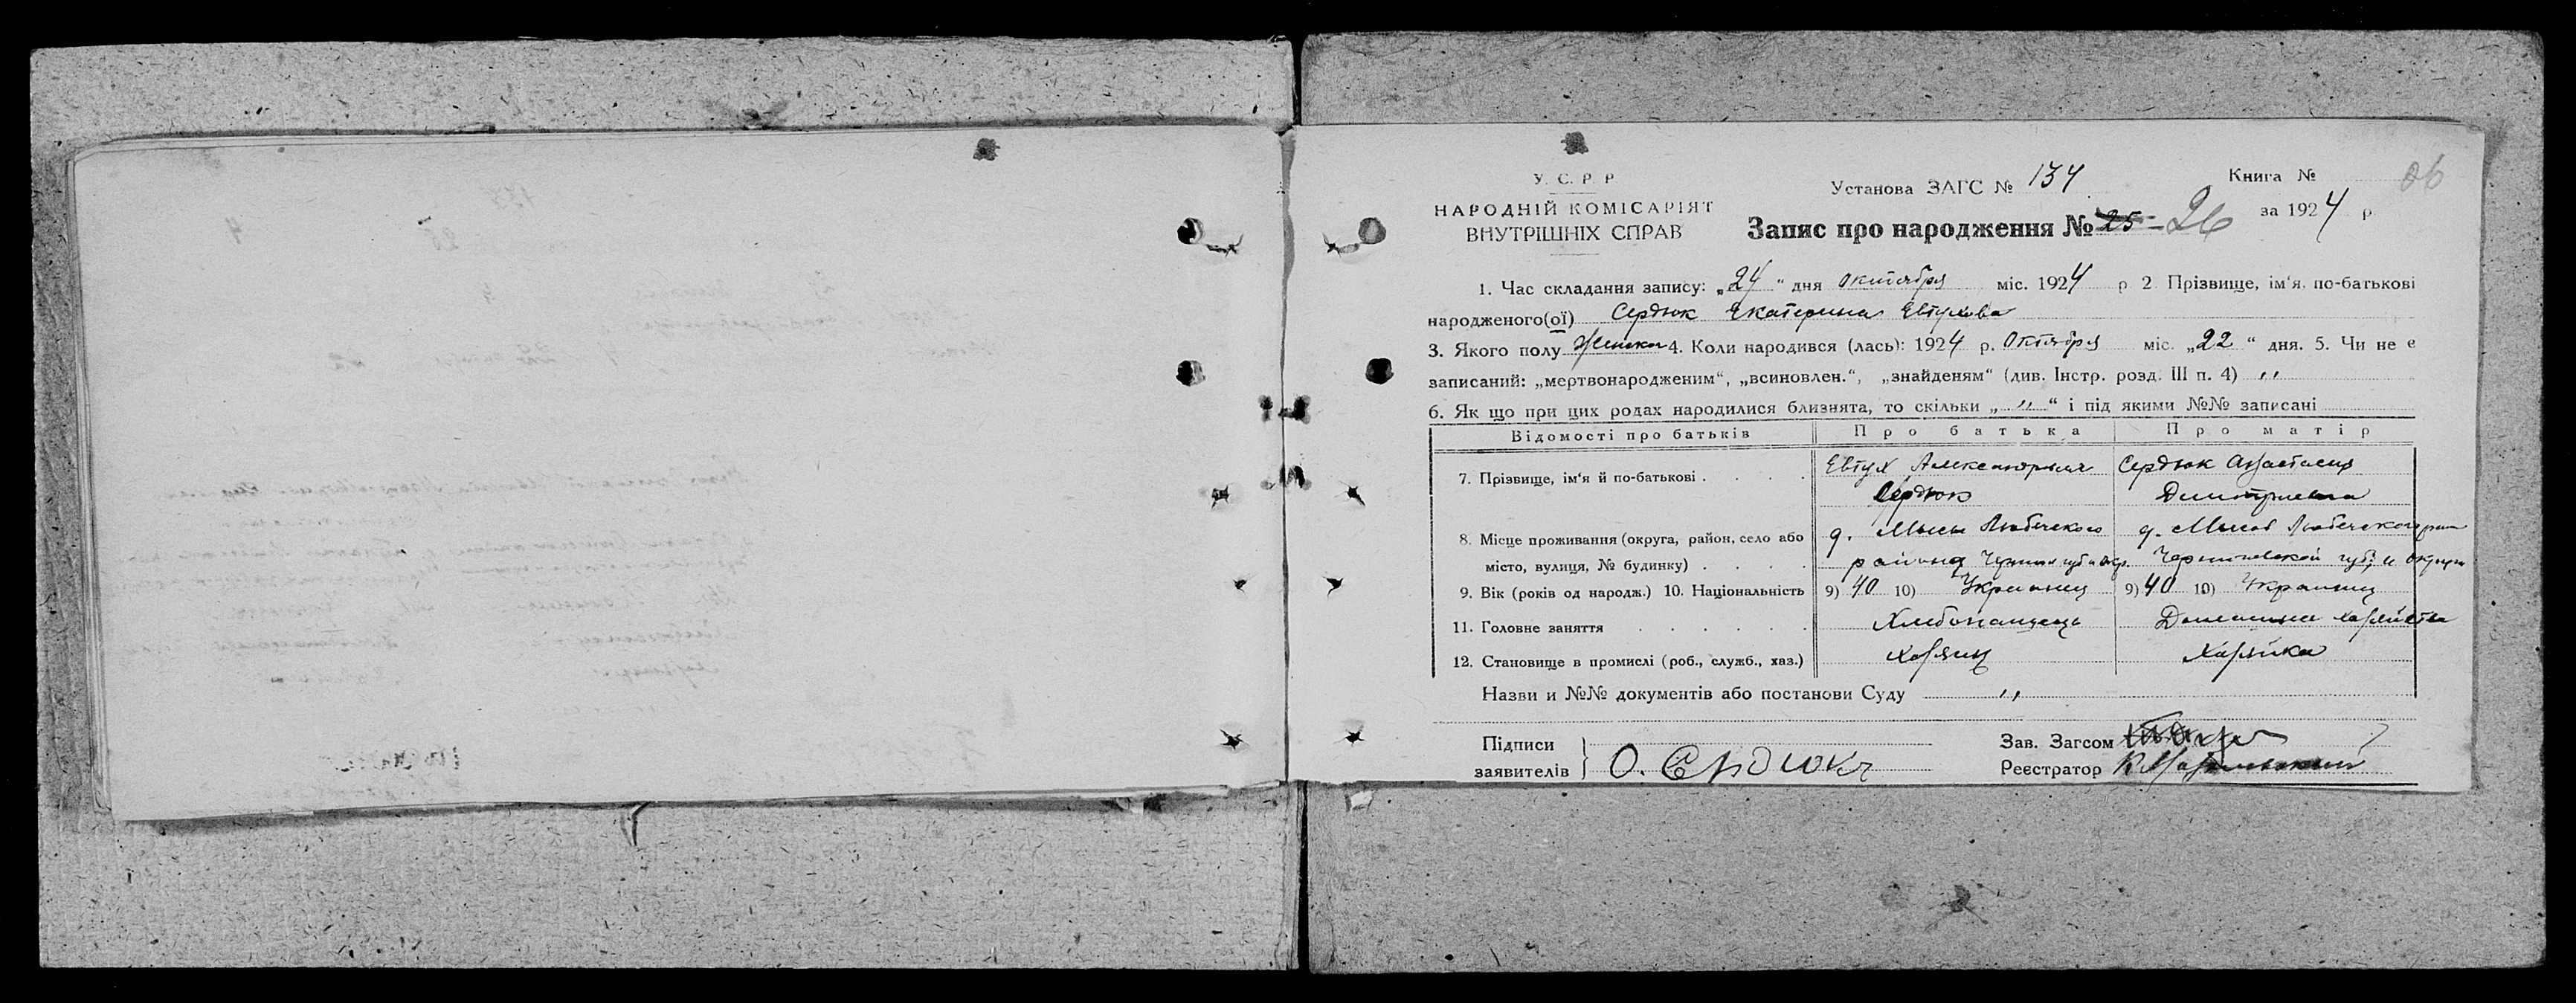 У. С. Р. Р
НАРОДНІЙ КОМІСАРІЯТ
ВНУТРІШНІХ СПРАВ
Установа ЗАГС № 134
Книга №
Запис про народження № 25 - 26
за 1924 р
1. Час складання запису: „24“ дня октября міс. 1924 р 2 Прізвище, ім'я, по-батькові
народженого(ої) Сердюк Екатерина Евтухова
3. Якого полу Женска 4. Коли народився (лась): 1924 р. Октября міс. „22“ дня. 5. Чи не є
записаний: „мертвонародженим“, „всиновлен.“, „знайденям“ (див. Інстр. розд. III п. 4) "
6. Як що при цих родах народилися близнята, то скільки „ " “ і під якими №№ записані
Відомості про батьків Про батька Про матір
7. Прізвище, ім'я й по-батькові . . . . Евтух Александрович Сердюк Анастасия
Сердюк Дмитриевна
8. Місце проживання (округа, район, село або д. Мысы Любечского д. Мысы Любечского
місто, вулиця, № будинку) . . . . района Черниговской губ. и округи
9. Вік (років од народж.) 10. Національність 9) 40 10) Украинец 9) 40 10)
11. Головне заняття . . . . . . Хлебопашець Домашнее хозяйство
12. Становище в промислі (роб., служб., хаз.) Хозяин Хозяйка
Назви и №№ документів або постанови Суду "
Підписи
заявителів О. Сердюк
Зав. Загсом
Реєстратор